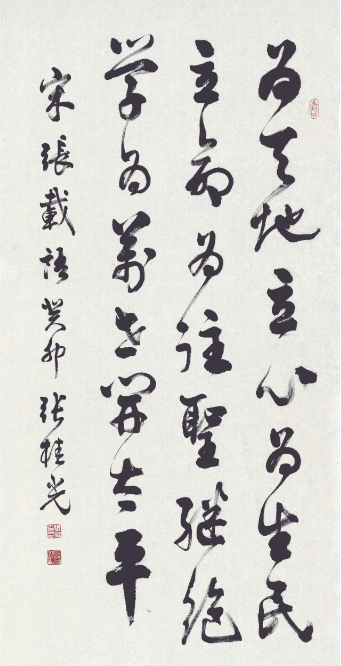 为天地立心为生民
立命为往聖继绝
学为萬世開太平
宋張載語癸卯张桂光